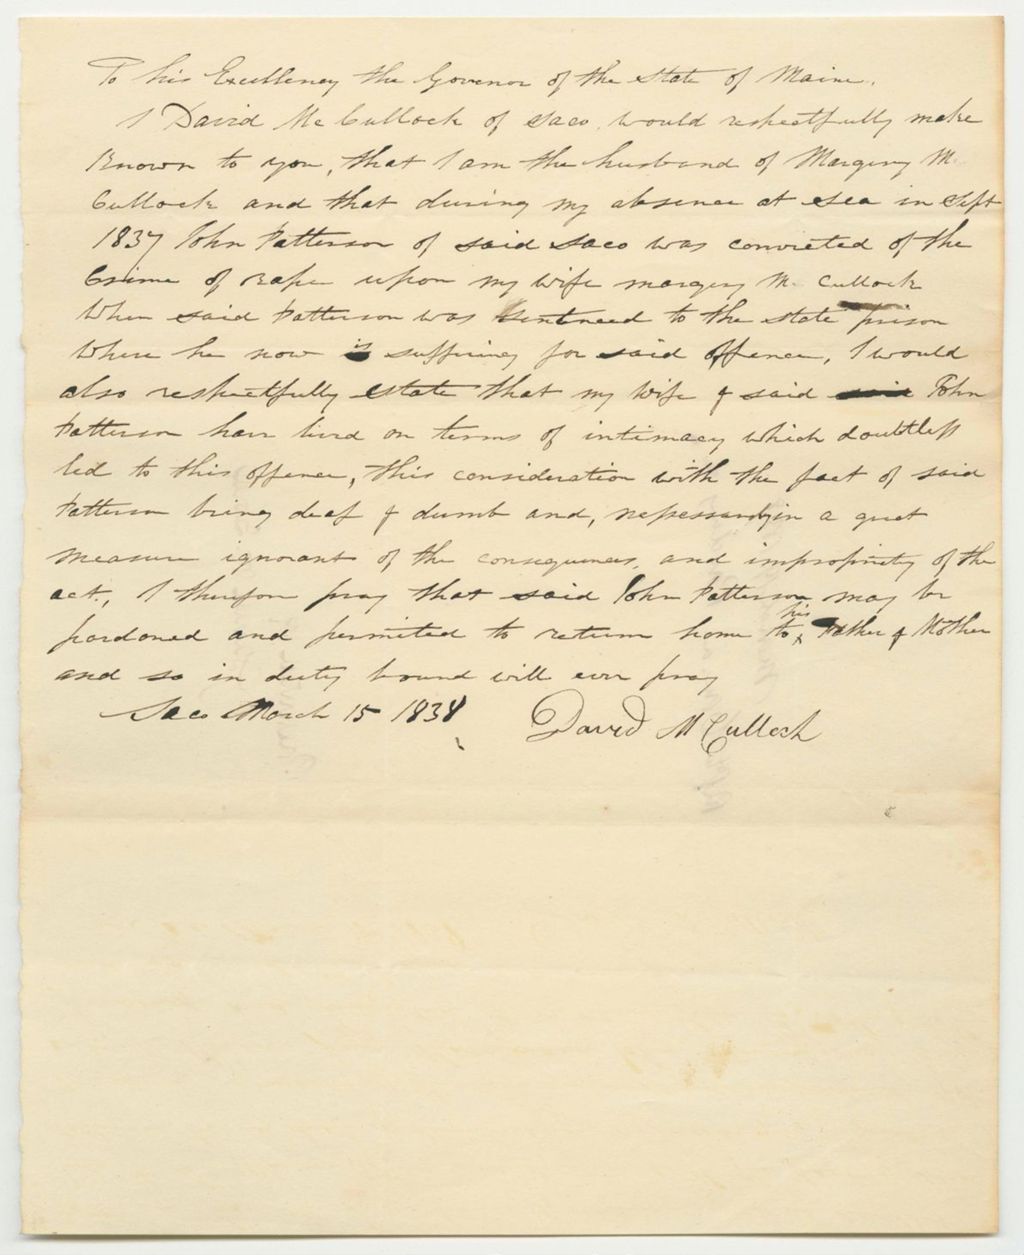 To his Excellency the Govenor of the State of Maine.
I David Mc Cullock of Saco, would respectfully make
Known to you, that I am the husband of Margery Mc
Cullock and that during my absence at Sea in Sept
1837 John Patterson of said Saco was convicted of the
Crime of Rape upon my wife margery Mc Cullock
When said Patterson was sentneed to the state prison
Where he now is suffering for said offence, I would
also respectfully state that my wife & said John
Patterson have lived on terms of intimacy which doubtless
led to this offence, this consideration with the fact of said
Patterson being deaf & dumb and, nessessarily in a great
measure ignorant of the consequences, and impropriety of the
act., I therefore pray that said John Patterson may be
pardoned and permited to return home to his Father & Mother
and so in duty bound will ever pray
Saco March 15 1838 David McCulloch